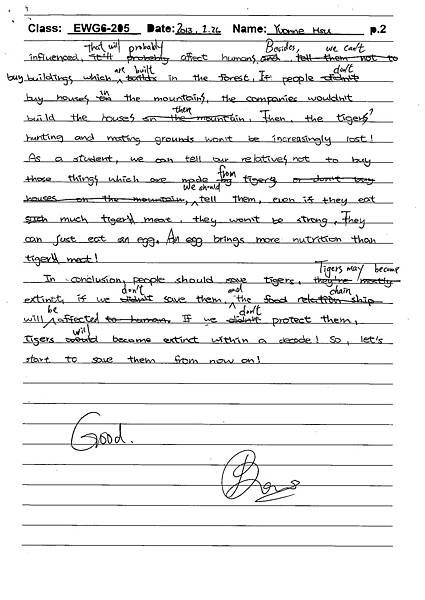 Class: EWG6-205 Date: 2013. 2. 26 Name: Yvonne Hsu p.2
That will probably Besides, we can't
influenced, it'll probably affect humans, and tell them not to
are built don't
buy buildings which builds in the forest. If people didn't
in
buy houses on the mountains, the companies wouldn't
then
build the houses on the mountain. Then, the tigers'
hunting and mating grounds won't be increasingly lost!
As a student, we can tell our relatives not to buy
from
those things which are made by tigers or don't buy
we should
houses on the mountain, tell them, even if they eat
such much tigers' meat, they won't be strong. They
can just eat an egg. An egg brings more nutrition than
tigers' meat!
Tigers may become
In conclusion, people should save tigers, they're mostly
don't and chain
extinct, if we didn't save them, the food relation ship
be don't
will affected to human. If we didn't protect them,
will
Tigers would become extinct within a decade! So, let's
start to save them from now on!
Good.